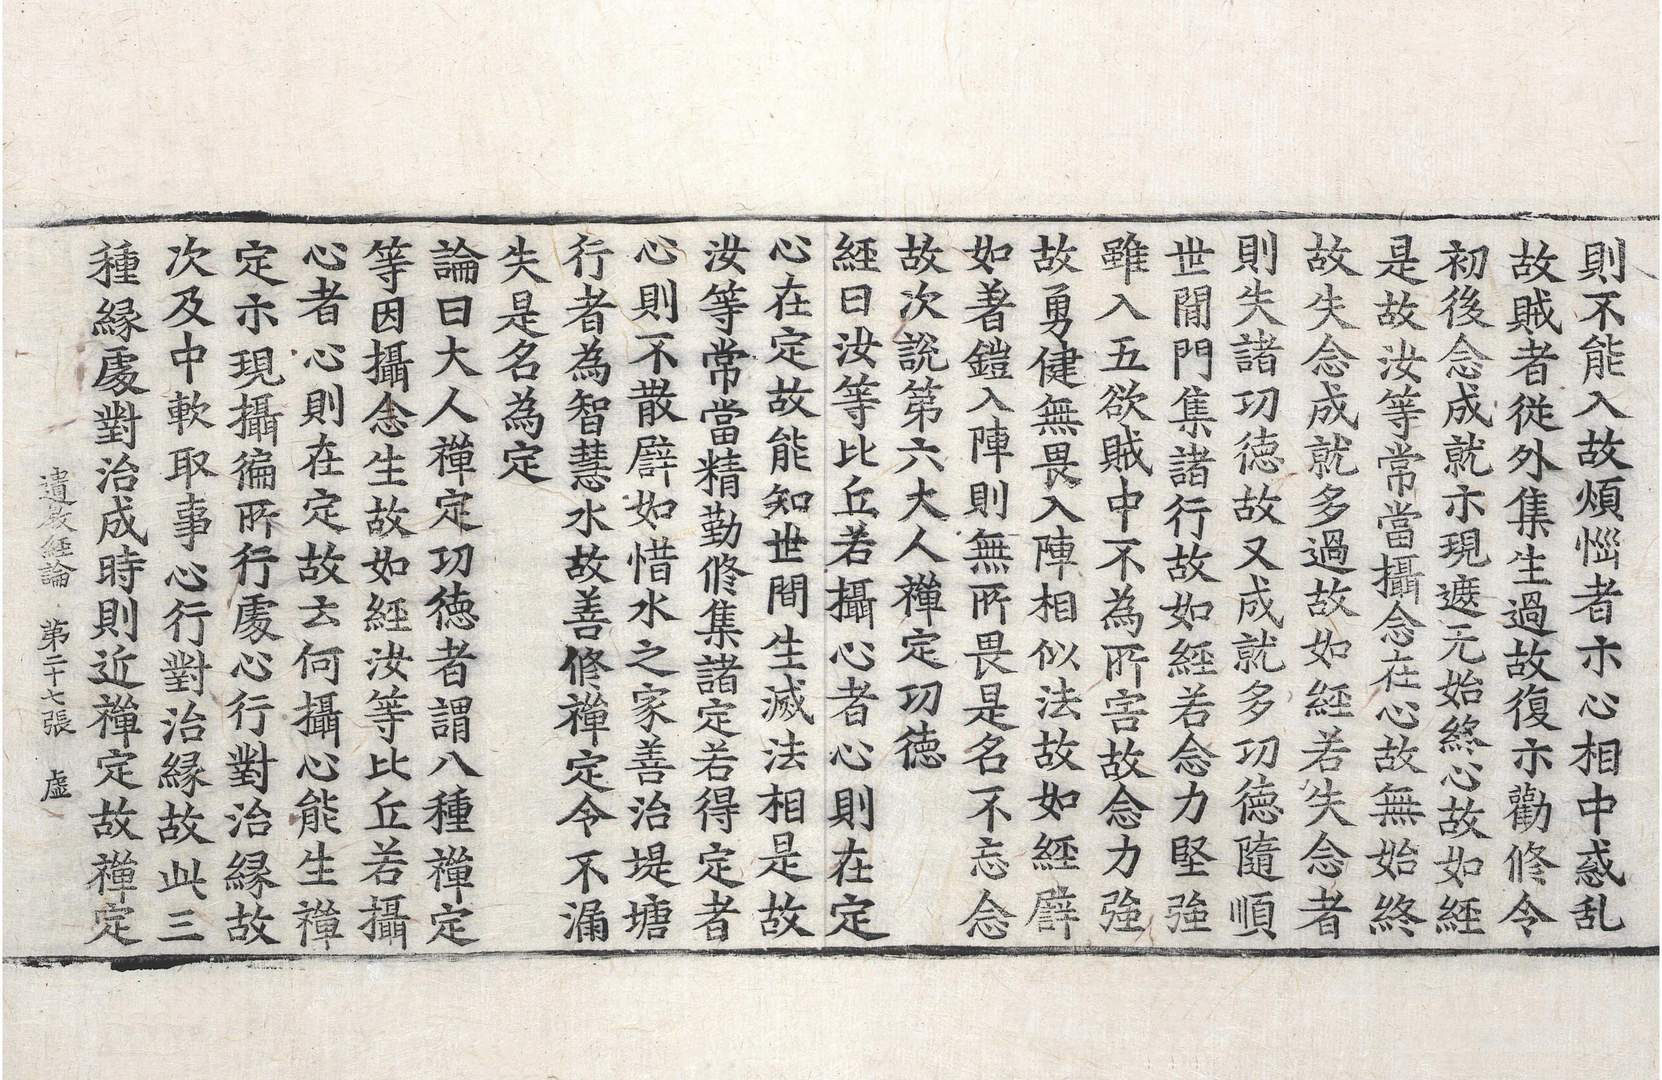 則不能入故煩惱者亦心相中惑乱
故賊者從外集生過故復亦勸修令
初後念成就亦現遮无始終心故如經
是故汝等常當攝念在心故無始終
故失念成就多過故如經若失念者
則失諸功德故又成就多功德隨順
世間門集諸行故如經若念力堅強
雖入五欲賊中不為所害故念力強
故勇健無畏入陣相似法故如經譬
如著鎧入陣則無所畏是名不忘念
故次說第六大人禪定功德
經曰汝等比丘若攝心者心則在定
心在定故能知世間生滅法相是故
汝等常當精勤修集諸定若得定者
心則不散譬如惜水之家善治堤塘
行者為智慧水故善修禪定令不漏
失是名為定
論曰大人禪定功德者謂八種禪定
等因攝念生故如經汝等比丘若攝
心者心則在定故云何攝心能生禪
定亦現攝徧所行處心行對治緣故
次及中軟取事心行對治緣故此三
種緣處對治成時則近禪定故禪定
遺教經論　第二十七張　虛